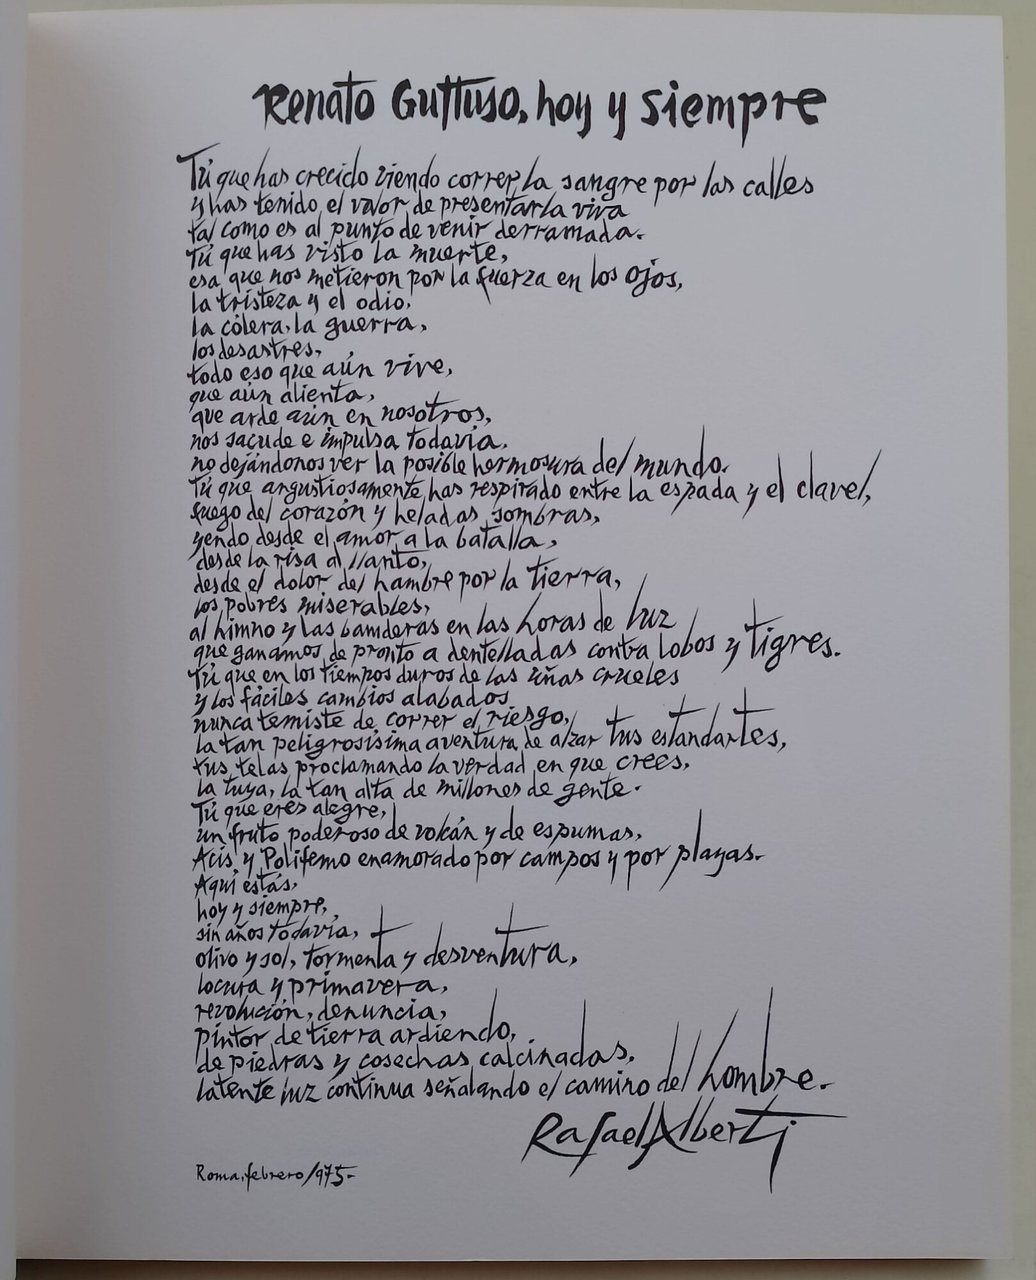 Renato Guttuso, hoy y siempre
Tú que has crecido viendo correr la sangre por las calles
y has tenido el valor de presentarla viva
tal como es al punto de venir derramada.
Tú que has visto la muerte,
esa que nos metieron por la fuerza en los ojos,
la tristeza y el odio,
la cólera, la guerra,
los desastres,
todo eso que aún vive,
que aún alienta,
que arde aún en nosotros,
nos sacude e impulsa todavía,
no dejándonos ver la posible hermosura del mundo.
Tú que angustiosamente has respirado entre la espada y el clavel,
fuego del corazón y heladas sombras,
yendo desde el amor a la batalla,
desde la risa al llanto,
desde el dolor del hambre por la tierra,
los pobres miserables,
al himno y las banderas en las horas de luz
que ganamos de pronto a dentelladas contra lobos y tigres.
Tú que en los tiempos duros de las uñas crueles
y los fáciles cambios alabados
nunca temiste de correr el riesgo,
la tan peligrosísima aventura de alzar tus estandartes,
tus telas proclamando la verdad en que crees,
la tuya, la tan alta de millones de gente.
Tú que eres alegre,
un fruto poderoso de volcán y de espumas,
Acis y Polifemo enamorado por campos y por playas.
Aquí estás,
hoy y siempre,
sin años todavía,
olivo y sol, tormenta y desventura,
locura y primavera,
revolución, denuncia,
pintor de tierra ardiendo,
de piedras y cosechas calcinadas,
latente luz continua señalando el camino del hombre.
Rafael Alberti
Roma, febrero/975-